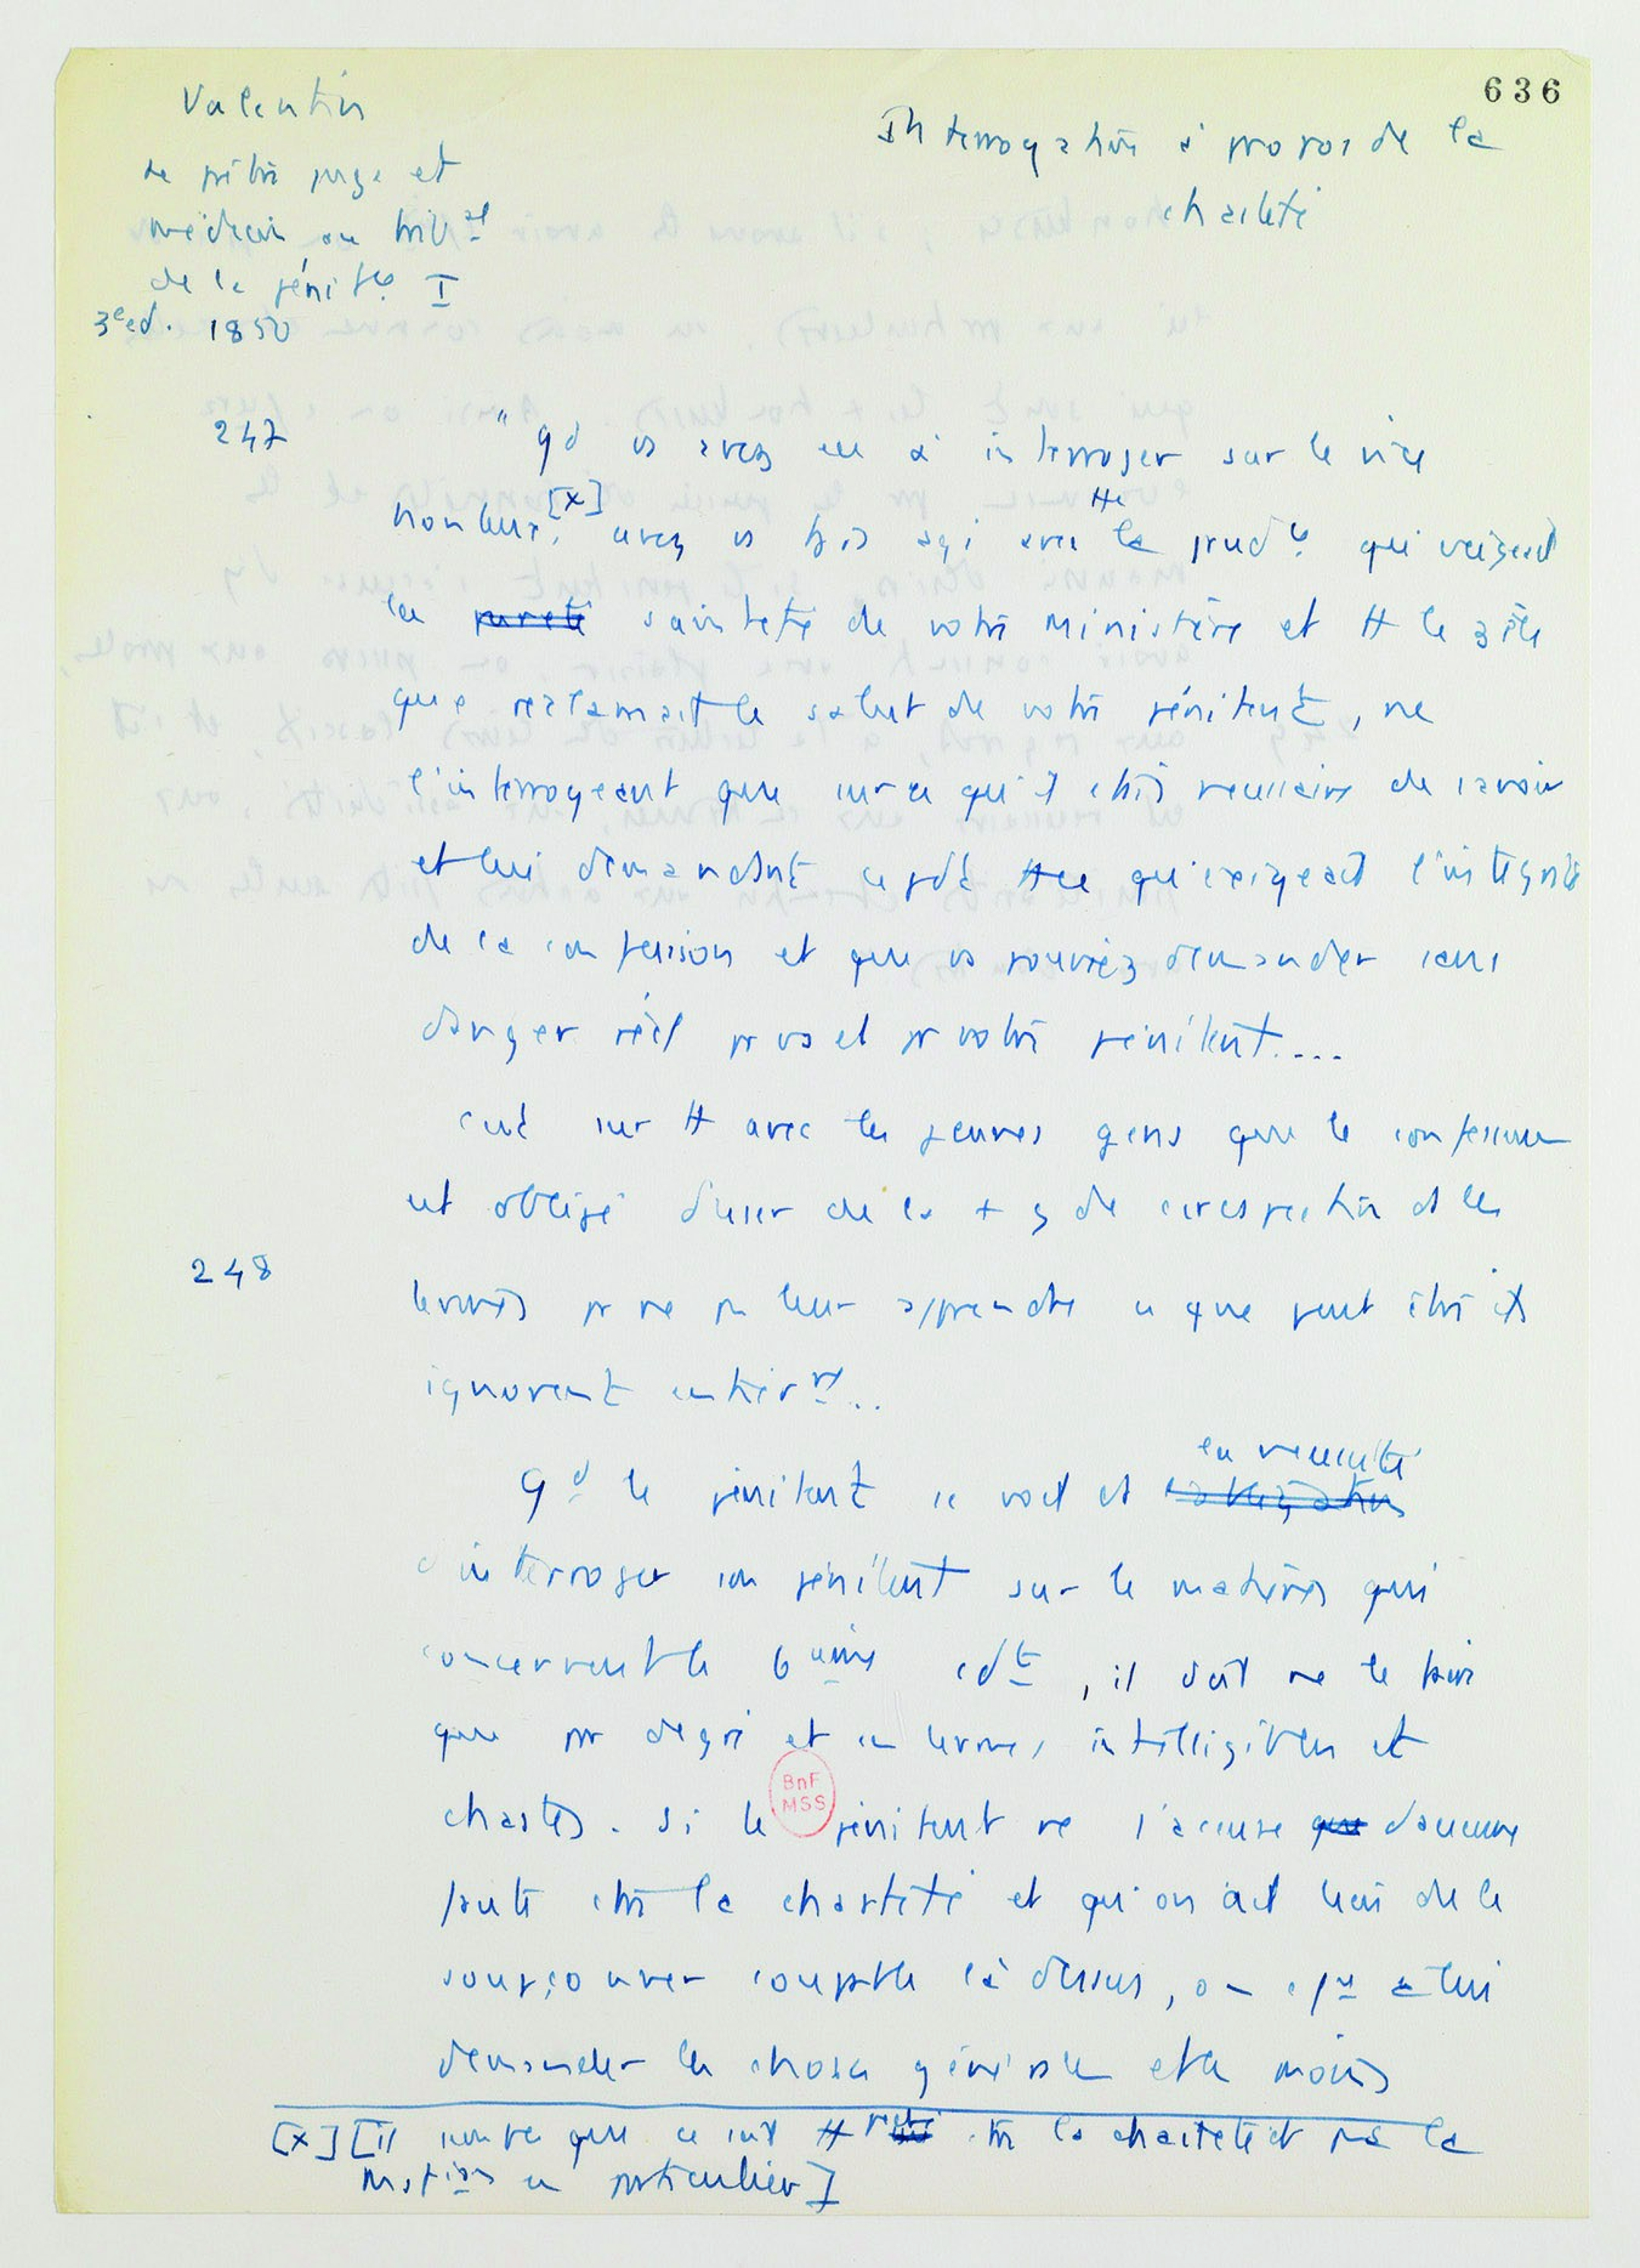 636
Valentin
Le prêtre juge et
médecin au trib^al
de la pénit^ce I
3e ed. 1850
Interrogation à propos de la
chasteté
247 "qd vs avez eu à interroger sur le vice
honteux, [x] avez vs tjs agi avec tte la prud^ce qu'exigeait
la pureté sainteté de votre ministère et tt le zèle
que réclamait le salut de votre pénitent, ne
l'interrogeant que sur ce qu'il était nécessaire de savoir
et lui demandant cpdt tt ce qu'exigeait l'intégrité
de la confession et que vs pouviez demander sans
danger réel pr vs et pr votre pénitent....
surt tt avec les jeunes gens que le confesseur
est obligé d'user de la + gde circonspection ds les
248 termes pr ne pas leur apprendre ce que peut être ils
ignorent entièrmt..
Qd le pénitent se voit ds l'obligation la nécessité
d'interroger son pénitent sur les matières qui
concernent le 6ème cdt, il doit ne le faire
que par degré et en termes intelligibles et
chastes. Si le pénitent ne s'accuse que d'aucune
faute ctre la chasteté et qu'on ait lieu de le
soupçonner coupable là dessus, on cce à lui
demander les choses générales et les moins
BnF
MSS
[x] [il semble que ce soit tt péché ctre la chasteté et pas la
mast^ion en particulier]